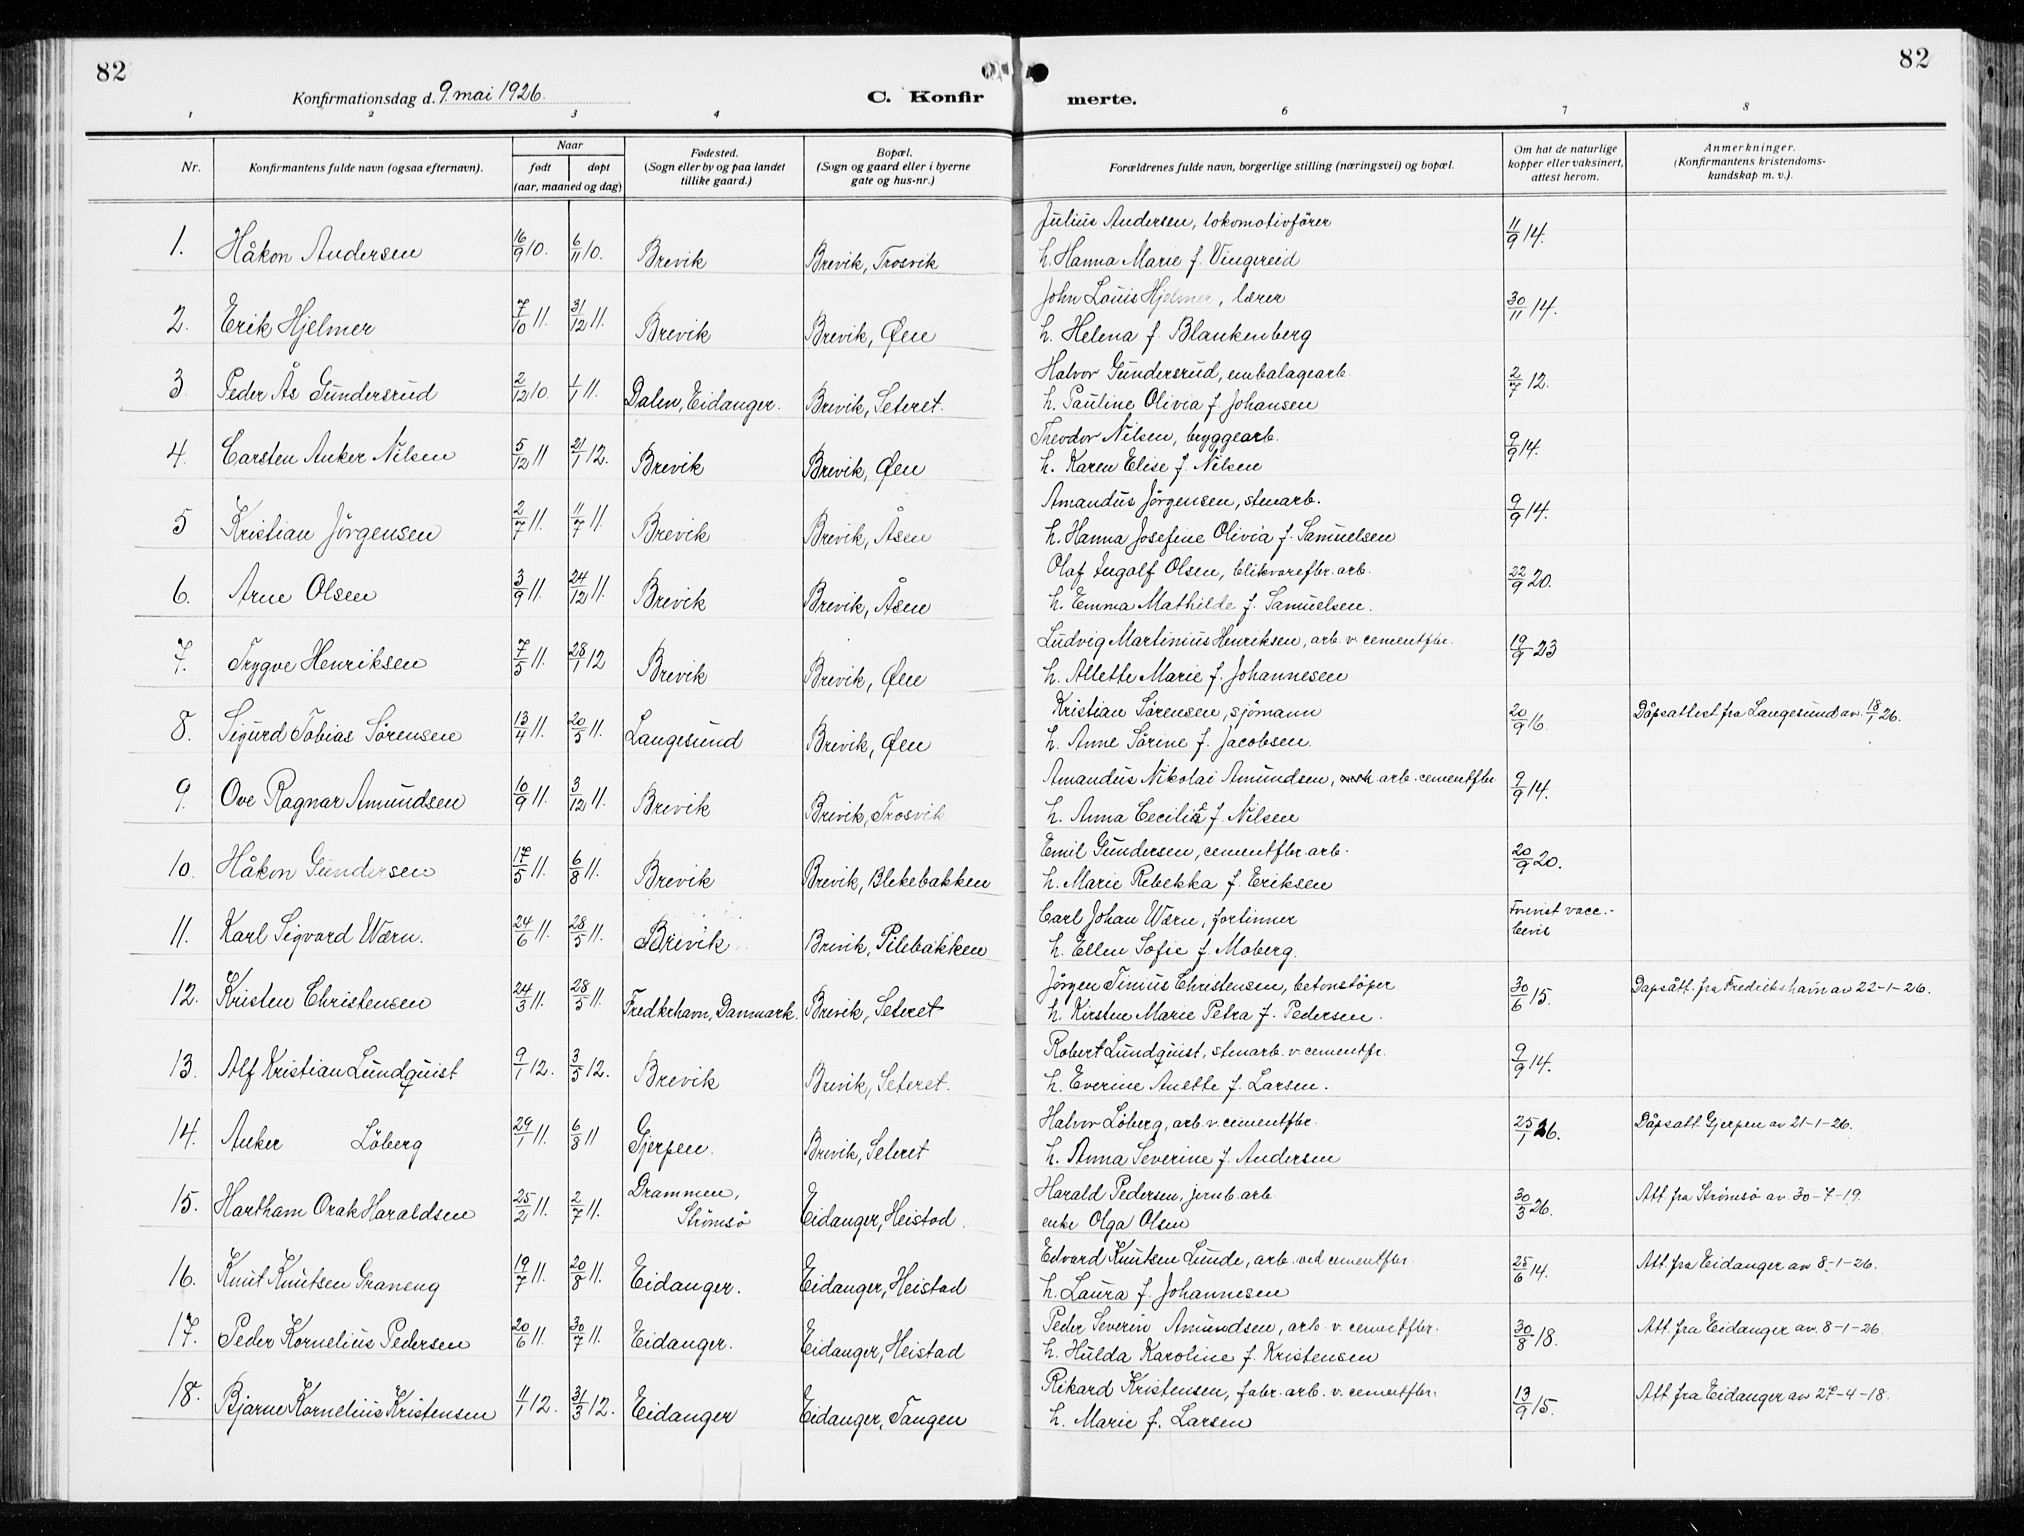 82
82
Konfirmationsdag d. 9. mai 1926.
C. Konfir merte.
1 2 3 4 6 7 8
Nr.
Konfirmantens fulde navn (ogsaa efternavn).
Naar
født døpt
(aar, maaned og dag)
Fødested.
(Sogn eller by og paa landet
tillike gaard.)
Bopæl.
(Sogn og gaard eller i byerne
gate og hus-nr.)
Forældrenes fulde navn, borgerlige stilling (næringsvei) og bopæl.
Om hat de naturlige
kopper eller vaksinert,
attest herom.
Anmerkninger.
(Konfirmantens kristendoms-
kundskap m. v.).
1. Håkon Andersen 16/9 10. 6/11 10. Brevik Brevik, Trosvik Julius Andersen, lokomotivfører 11/9 14.
h. Hanna Marie f. Vingereid
2. Erik Hjelmer 7/10 11. 31/12 11. Brevik Brevik, Øen John Louis Hjelmer, lærer 30/11 14.
h. Helena f. Blankenberg
3 Peder Ås Gundersrud 2/12 10. 1/1 11. Dalen, Eidanger. Brevik, Seteret. Halvor Gundersrud, embalagearb. 2/7 12.
h. Pauline Olivia f. Johansen
4. Carsten Anker Nilsen 5/12 11 21/1 12. Brevik Brevik, Øen Theodor Nilsen, bryggearb. 9/9 14.
h. Karen Elise f. Nilsen
5 Kristian Jörgensen 2/7 11. 11/7 11. Brevik Brevik, Åsen Amandus Jörgensen, stenarb. 9/9 14.
h. Hanna Josefine Olivia f. Samuelsen
6. Arne Olsen 3/9 11. 24/12 11. Brevik Brevik, Åsen Olaf Ingolf Olsen, blikvarefbr. arb. 22/9 20.
h. Emma Mathilde f. Samuelsen.
7. Trygve Henriksen 7/5 11. 28/1 12 Brevik Brevik, Øen Ludvig Martinius Henriksen, arb. v. cementfbr. 19/9 23
h. Allette Marie f. Johannesen
8. Sigurd Tobias Sørensen 13/4 11. 20/5 11. Langesund Brevik, Øen Kristian Sørensen, sjömann 20/9 16. Dåpsattest fra Langesund av 18/1 26.
h. Anne Sörine f. Jacobsen.
9. Ove Ragnar Amundsen 10/9 11. 3/12 11. Brevik Brevik, Trosvik Amandus Nikolai Amundsen, arb. cementfbr 9/9 14.
h. Anna Cecilie f. Nilsen
10. Håkon Gundersen 17/5 11. 6/8 11. Brevik Brevik, Blekebakken Emil Gundersen, cementfbr. arb. 20/9 20.
h. Marie Rebekka f. Eriksen
11. Karl Sigvard Wærn. 24/6 11. 28/5 11. Brevik Brevik, Pilebakken Carl Johan Wærn, fortinner Forevist vacc.-
h. Ellen Sofie f. Moberg. bevis
12. Kristen Christensen 24/3 11. 28/5 11. Fredkrhavn, Danmark. Brevik, Seteret Jörgen Tinius Christensen, betonstöper 30/6 15. Dapsått. fra Fredrikshavn av 22-1-26.
h. Kirsten Marie Petra f. Pedersen.
13. Alf Kristian Lundquist 9/1 12. 3/5 12. Brevik Brevik, Seteret. Robert Lundquist, stenarb. v. cementfr. 9/9 14.
h. Everine Anette f. Larsen.
14. Anker Löberg 29/1 11. 6/8 11 Gjerpen. Brevik, Seteret Halvor Löberg, arb. v. cementfbr. 25/1 26. Dåpsatt. Gjerpen av 21-1-26.
h. Anna Severine f. Andersen
15. Hartham Orak Haraldsen 25/2 11. 2/7 11. Drammen, Strömsö Eidanger, Heistad. Harald Pedersen, jernb. arb. 30/3 26. Att. fra Strömsö av 30-7-19.
enke Olga Olsen
16. Knut Knutsen Graneng 19/7 11. 20/8 11. Eidanger. Eidanger, Heistad Edvard Knutsen Lunde, arb. ved cementfbr. 25/6 14. Att. fra Eidanger av 8-1-26.
h. Laura f. Johannesen
17. Peder Kornelius Pedersen 20/6 11. 30/7 11. Eidanger. Eidanger, Heistad Peder Severin Amundsen, arb. v. cementfbr. 30/8 18. Att. fra Eidanger av. 8-1-26.
h. Hulda Karoline f. Kristensen
18. Bjarne Kornelius Kristensen 11/1 12. 31/3 12. Eidanger Eidanger, Tangen Rikard Kristensen, fabr. arb. v. cementfbr. 13/9 15. Att. fra Eidanger av 27-4-18.
h. Marie f. Larsen